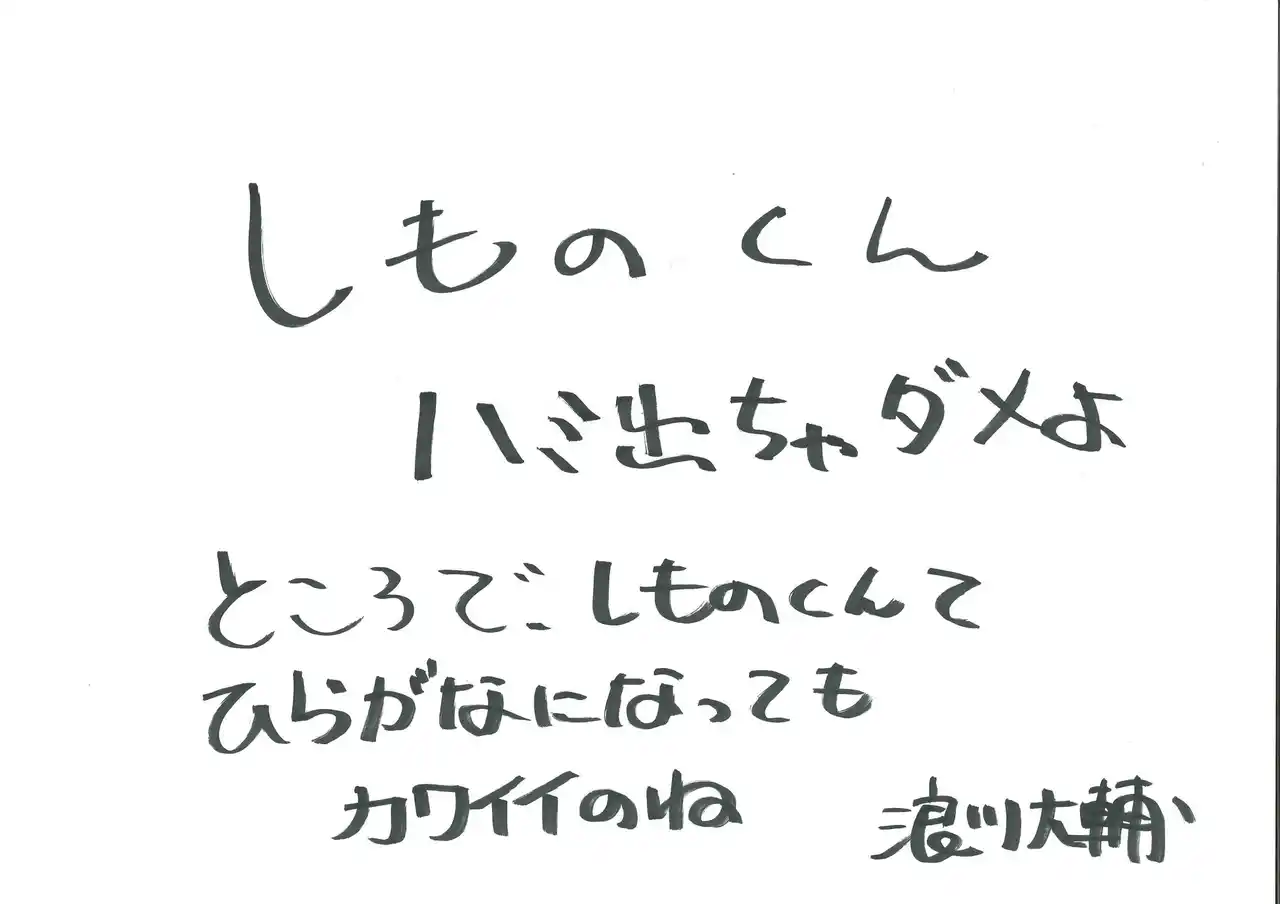 しものくん
ハミ出ちゃダメよ
ところで、しものくんて
ひらがなになっても
カワイイのね
浪川大輔